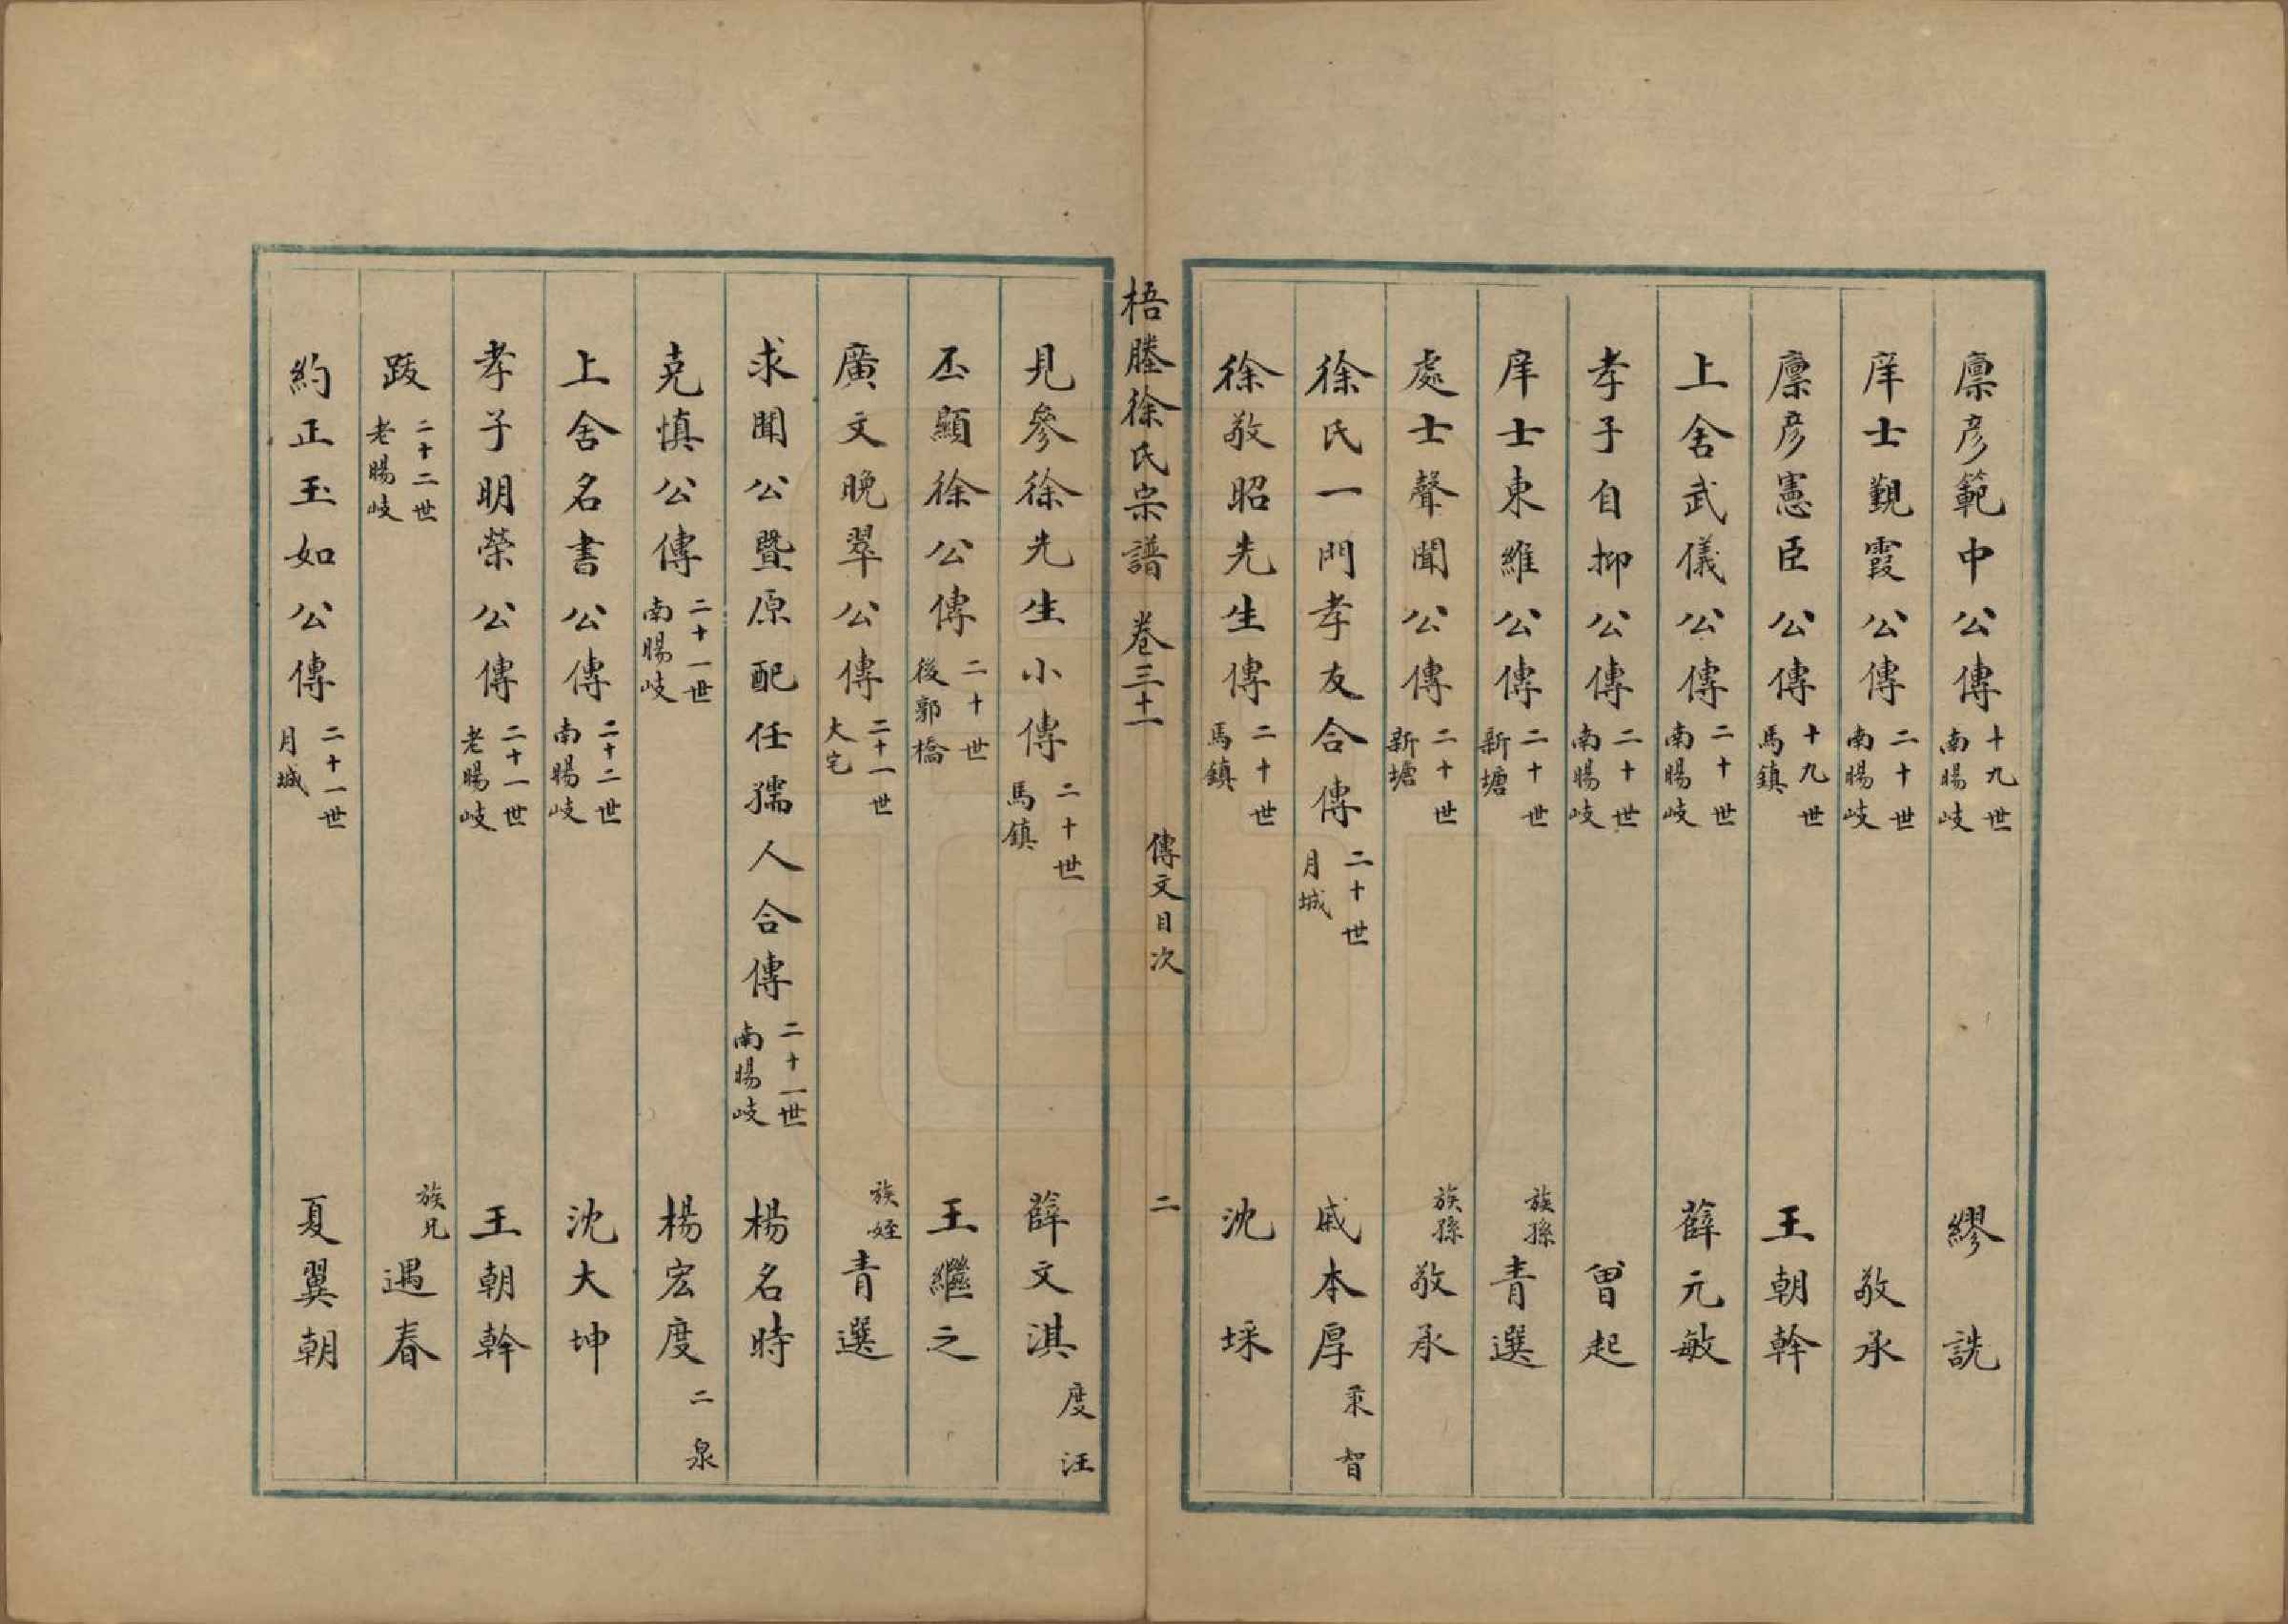 廩彦範中公傳 十九世 南暘岐 繆詵
庠士覲霞公傳 二十世 南暘岐 敬承
廩彦憲臣公傳 十九世 馬鎮 王朝幹
上舍武儀公傳 二十世 南暘岐 薛元敏
孝子自抑公傳 二十世 南暘岐 曾起
庠士東維公傳 二十世 新塘 族孫 青選
處士聲聞公傳 二十世 新塘 族孫 敬承
徐氏一門孝友合傳 二十世 月城 戚本厚
徐敬昭先生傳 二十世 馬鎮 沈埰
梧塍徐氏宗譜 卷三十一 傳文目次 二
見參徐先生小傳 二十世 馬鎮 薛文淇 度汪
丕顯徐公傳 二十世 後郭橋 王繼之
廣文晚翠公傳 二十一世 大宅 族姪 青選
求聞公暨原配任孺人合傳 二十一世 南暘岐 楊名時
克慎公傳 二十一世 南暘岐 楊宏度 二泉
上舍名書公傳 二十二世 南暘岐 沈大坤
孝子明榮公傳 二十一世 老暘岐 王朝幹
跋 二十二世 老暘岐 族兄 遇春
約正玉如公傳 二十一世 月城 夏翼朝